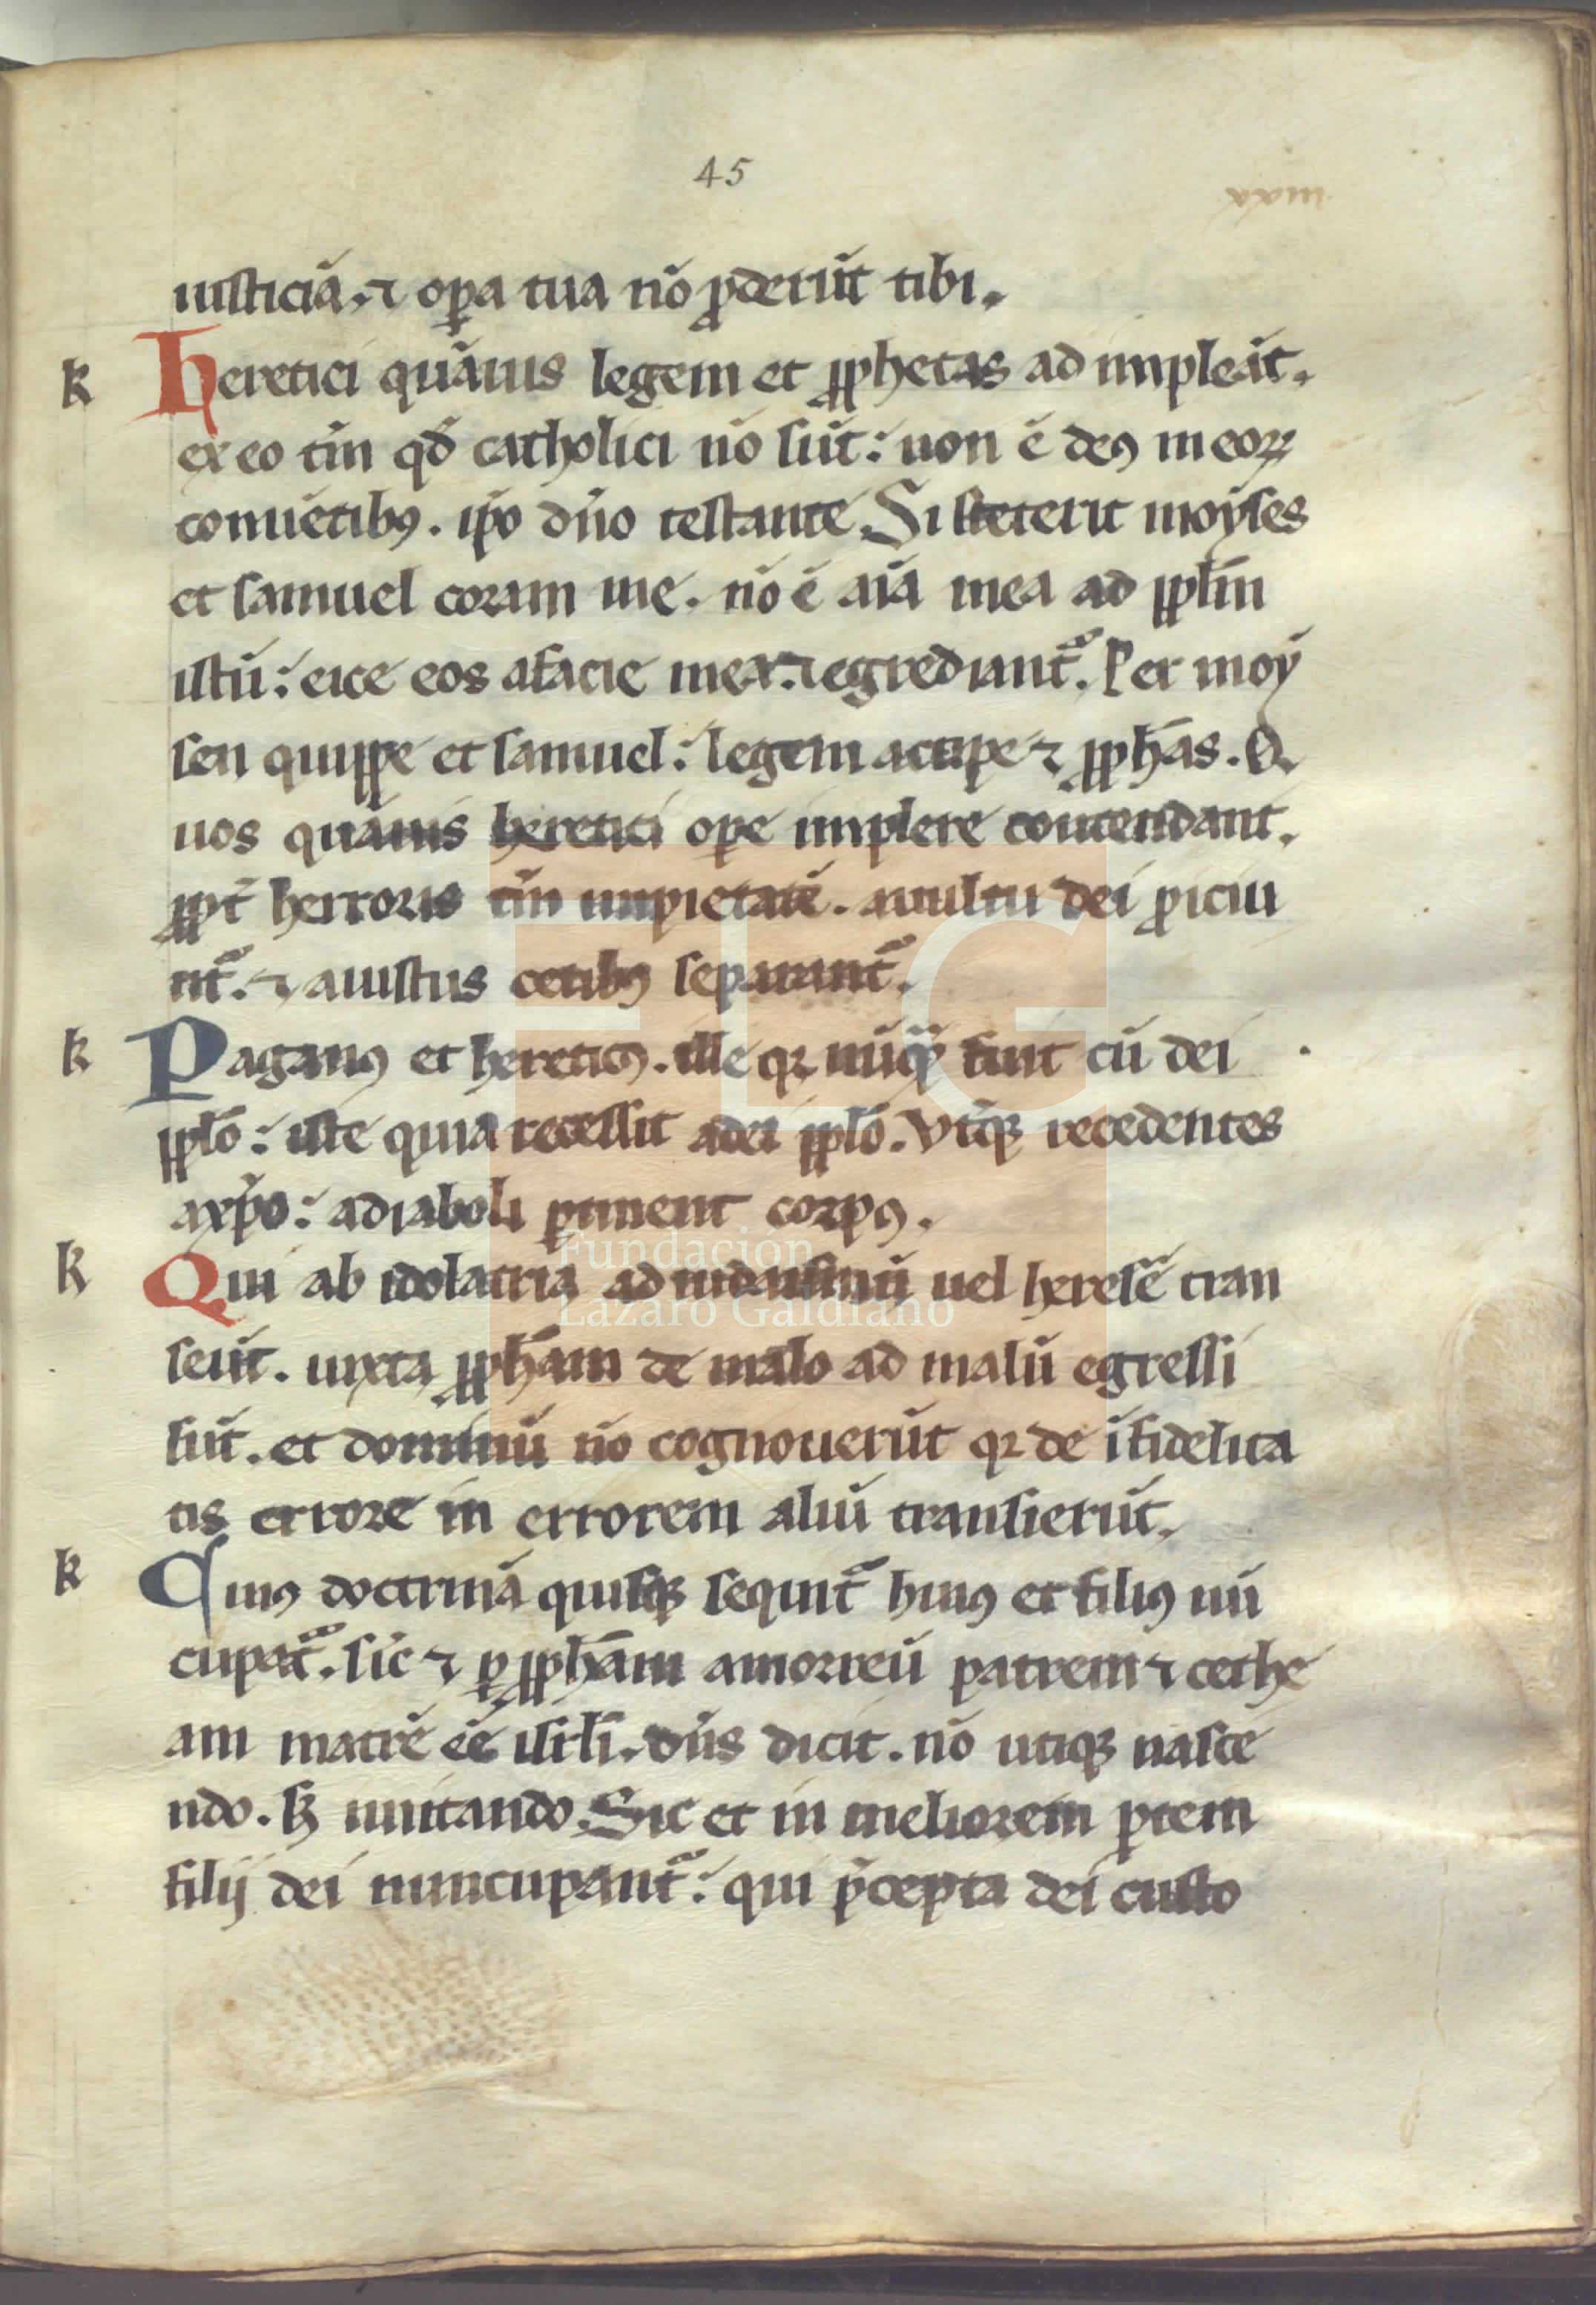 45
iusticiã. ⁊ oꝑa tua nõ ꝓderũt tibi.
k Heretici quãuis legem et ꝓphetas adimpleãt.
ex eo tm̃ qđ catholici nõ sũt: non ẽ deꝰ in eoꝝ
conuẽtibꝰ. ip̃o dño testante. Si steterit moyses
et samuel coram me. nõ ẽ aĩa mea ad pplm̃
istũ: eice eos a facie mea. ⁊ egrediant᷑. Per moy
sen quippe et samuel: legem accipe ⁊ ꝓph̃as. Q
uos quãuis heretici oꝑe implere contendant.
ꝓpt̃ herroris tm̃ impietatẽ. a uultu dei ꝓiciu
nt᷑. ⁊ a iustis cetibꝰ separant᷑.
k Paganꝰ et hereticꝰ. ille qꝛ nũqᷓ fuit cũ dei
pplõ: iste quia recessit a dei pplõ. Vtiqꝫ recedentes
a xp̃o: a diaboli ꝑtinent corpꝰ.
k Qui ab idolatria ad iudaismũ uel heresẽ tran
seũt. iuxta ꝓph̃am de malo ad malũ egressi
sũt. et dominũ nõ cognouerũt qꝛ de ĩfidelita
tis errore in errorem aliũ transierũt.
k Cuiꝰ doctrinã quisqꝫ sequit᷑ huiꝰ et filiꝰ nũ
cupat᷑. sic̃ ⁊ ꝑ ꝓph̃am amorreũ patrem ⁊ cethe
am matrẽ eẽ isrl̃i. dñs dicit. nõ utiqꝫ nasce
ndo. sꝫ imitando. Sic et in meliorem ꝑtem
filij dei nuncupant᷑: qui p̃cepta dei custo
Fundación
Lázaro Galdiano
FLG